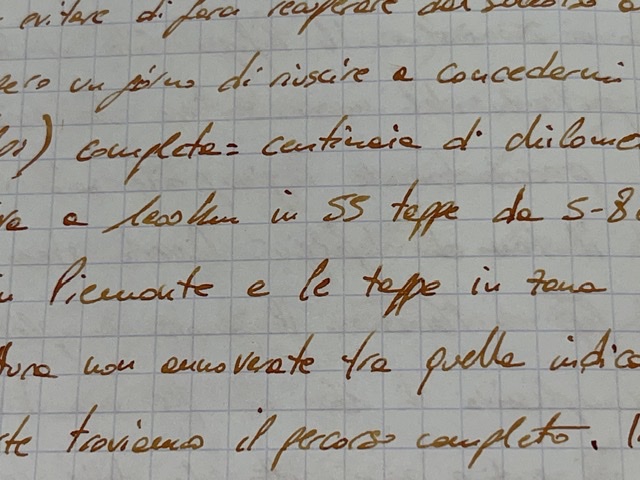 evitare di farci recuperare dal soccorso a
pero un giorno di riuscire a concedermi
) completa = centinaia di chilome
a in 55 tappe da 5-8
Piemonte e le tappe in zona
tura non annoverate tra quelle indica
rte troviamo il percorso completo.